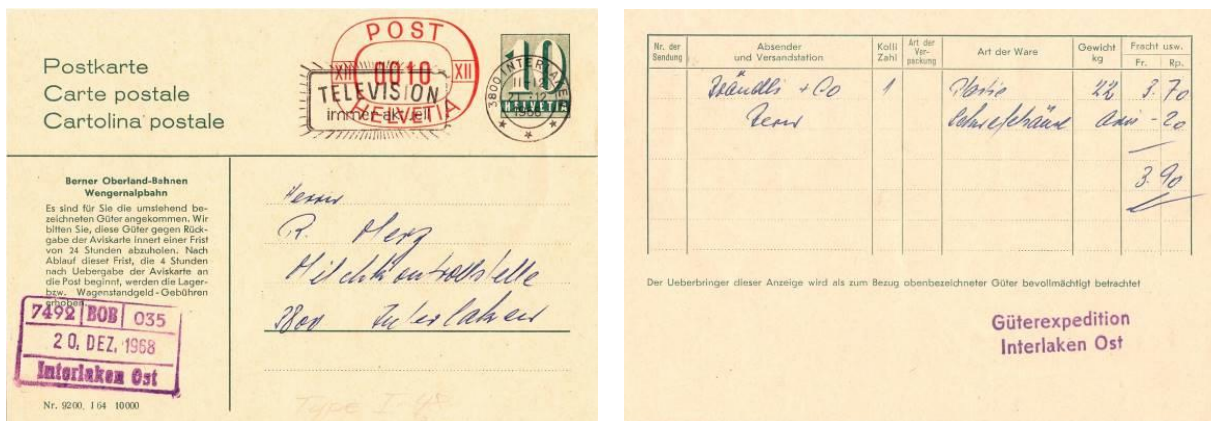 Postkarte
Carte postale
Cartolina postale
POST
XII 0010 XII
HELVETIA
TELEVISION
immer aktuell
10
HELVETIA
3800 INTERLAKEN
21.12
1968
Berner Oberland-Bahnen
Wengernalpbahn
Es sind für Sie die umstehend be-
zeichneten Güter angekommen. Wir
bitten Sie, diese Güter gegen Rück-
gabe der Aviskarte innert einer Frist
von 24 Stunden abzuholen. Nach
Ablauf dieser Frist, die 4 Stunden
nach Uebergabe der Aviskarte an
die Post beginnt, werden die Lager-
bzw. Wagenstandgeld-Gebühren
erhoben.
7492 BOB 035
20. DEZ. 1968
Interlaken Ost
Nr. 9200. I 64 10000
Herrn
R. Herz
Milchkontrollstelle
3800 Interlaken
Type I
Nr. der Sendung
Absender und Versandstation
Kolli Zahl
Art der Ver- packung
Art der Ware
Gewicht kg
Fracht usw.
Fr. Rp.
Brändli + Co 1 22 3.70
Bern Avis -20
3.90
Der Ueberbringer dieser Anzeige wird als zum Bezug obenbezeichneter Güter bevollmächtigt betrachtet
Güterexpedition
Interlaken Ost